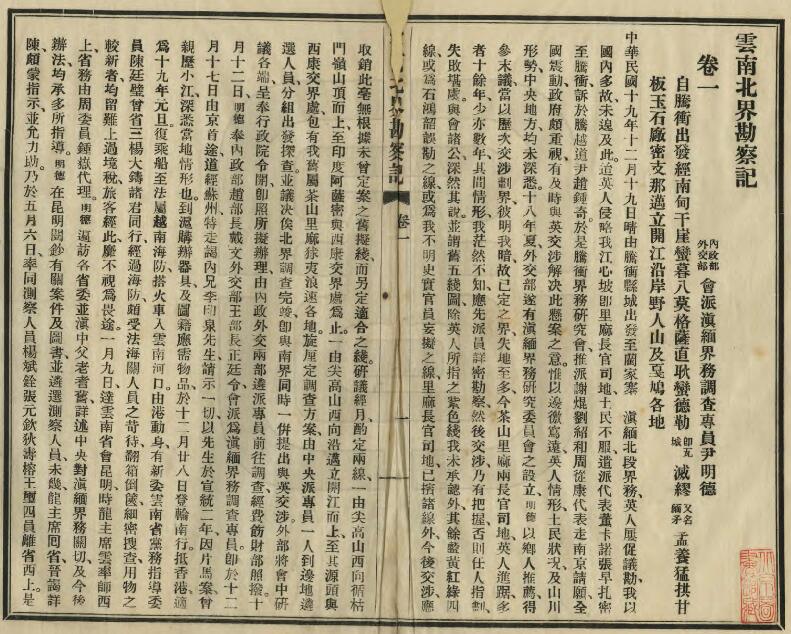 雲南北界勘察記
卷一
內政部外交部 會派滇緬界務調查專員尹明德
自騰衝出發經南甸干崖蠻暮八莫格薩直耿蠻德勒 卽瓦城 滅繆 又名緬矛 孟養猛拱甘
板玉石廠密支那邁立開江沿岸野人山及戞鳩各地
中華民國十九年十二月十九日晴由騰衝縣城出發至蘭家寨 滇緬北段界務英人屢促議勘我以
國內多故未遑及此迨英人侵略我江心坡卽里麻長官司地土民不服遣派代表董卡諾張早扎密
至騰衝訴於騰越道尹趙鍾奇於是騰衝界務研究會推派謝焜劉紹和周從康代表走南京請願全
國震動政府頗重視有及時與英交涉解决此懸案之意惟以邊徼寫遠英人情形土民狀况及山川
形勢中央地方均未深悉十八年夏外交部遂有滇緬界務研究委員會之設立明德以鄉人推薦得
參末議當以歷次交涉劃界彼明我暗故已定之界失地至多今茶山里麻兩長官司地英人進踞多
者十餘年少亦數年其間情形我茫然不知應先派員詳密勘察然後交涉乃有把握否則任人指劃
失敗堪虞與會諸公深然其說並謂舊五綫圖除英人所指之紫色綫我未承認外其餘藍黃紅綠四
線或爲石鴻韶誤勘之線或爲我不明史實官員妄擬之線里麻長官司地已擯諸線外今後交涉應
北界勘察記 卷一 一
取銷此毫無根據未曾定案之舊擬綫而另定適合之綫研議經月酌定兩綫一由尖高山西向循枯
門嶺山頂而上至印度阿薩密與西康交界處爲止一由尖高山西向沿邁立開江而上至其源頭與
西康交界處包有我舊屬茶山里麻俅夷浪速各地旋厘定調查方案由中央派專員一人到邊地遴
選人員分組出發探查並議决俟北界調查完竣卽與南界同時一併提出與英交涉外部將會中研
議各端呈奉行政院令開卽照所擬辦理由內政外交兩部遴派專員前往調查經費飭財部照撥十
月十二日明德奉內政部趙部長戴文外交部王部長正廷令會派爲滇緬界務調查專員卽於十二
月十七日由京首途道經蘇州特走謁內兄李印泉先生請示一切以先生於宣統二年因片馬案曾
親歷小江深悉當地情形也到滬購辦器具及圖籍應需物品於十二月廿八日登輪南行抵香港適
爲十九年元旦復乘船至法屬越南海防搭火車入雲南河口由港動身有新委雲南省黨務指導委
員陳廷璧曾省三楊大鑄諸君同行經過海防頗受法海關人員之苛待翻箱倒篋細密搜查用物之
較新者均留難上過境稅旅客經此靡不視爲畏途一月九日達雲南省會昆明時龍主席雲率師西
上省務由周委員鍾嶽代理明德遍訪各省委並滇中父老耆舊詳述中央對滇緬界務關切及今後
辦法均承多所指導明德在昆明閱鈔有關案件及圖書並遴選測察人員未幾龍主席囘省晉謁詳
陳頗蒙指示並允力助乃於五月六日率同測察人員楊斌銓張元欽狄壽榕王璽四員離省西上是